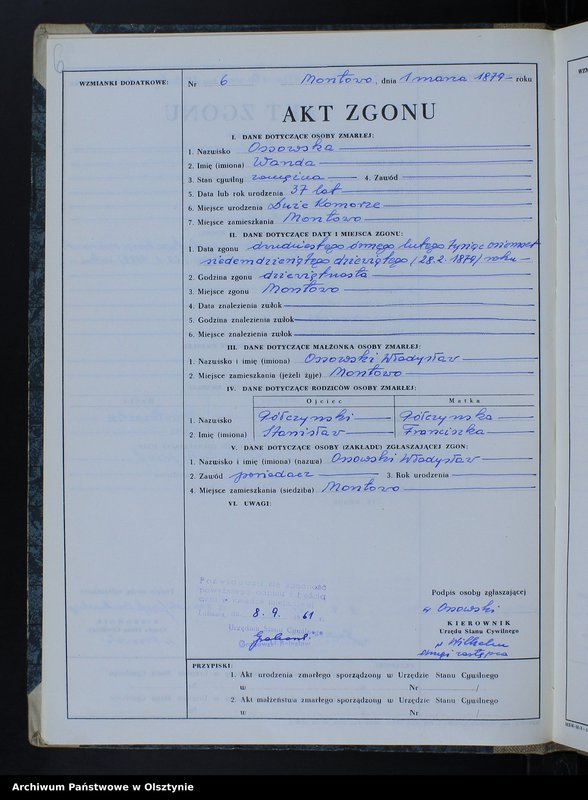 6
WZMIANKI DODATKOWE:
Nr 6 Montowo, dnia 1 marca 1879 roku
AKT ZGONU
I. DANE DOTYCZĄCE OSOBY ZMARŁEJ:
1. Nazwisko Ossowska
2. Imię (imiona) Wanda
3. Stan cywilny zamężna 4. Zawód
5. Data lub rok urodzenia 37 lat
6. Miejsce urodzenia Duże Komorze
7. Miejsce zamieszkania Montowo
II. DANE DOTYCZĄCE DATY I MIEJSCA ZGONU:
1. Data zgonu dwudziestego ósmego lutego tysiąc osiemset
siedemdziesiątego dziewiątego /28.2.1879/ roku
2. Godzina zgonu dziewiętnasta
3. Miejsce zgonu Montowo
4. Data znalezienia zwłok
5. Godzina znalezienia zwłok
6. Miejsce znalezienia zwłok
III. DANE DOTYCZĄCE MAŁŻONKA OSOBY ZMARŁEJ:
1. Nazwisko i imię (imiona) Ossowski Władysław
2. Miejsce zamieszkania (jeżeli żyje) Montowo
IV. DANE DOTYCZĄCE RODZICÓW OSOBY ZMARŁEJ:
Ojciec Matka
1. Nazwisko Półczynski Półczynska
2. Imię (imiona) Stanisław Franciszka
V. DANE DOTYCZĄCE OSOBY (ZAKŁADU) ZGŁASZAJĄCEJ ZGON:
1. Nazwisko i imię (imiona) (nazwa) Ossowski Władysław
2. Zawód posiadacz 3. Rok urodzenia
4. Miejsce zamieszkania (siedziba) Montowo
VI. UWAGI:
Poświadcza się zgodność
8. 9. 61 r.
Urzędu Stanu Cywilnego
Podpis osoby zgłaszającej
Ossowski
KIEROWNIK
Urzędu Stanu Cywilnego
Wilhelm
zastępca
PRZYPISKI:
1. Akt urodzenia zmarłego sporządzony w Urzędzie Stanu Cywilnego
w Nr /
2. Akt małżeństwa zmarłego sporządzony w Urzędzie Stanu Cywilnego
w Nr /
Archiwum Państwowe w Olsztynie